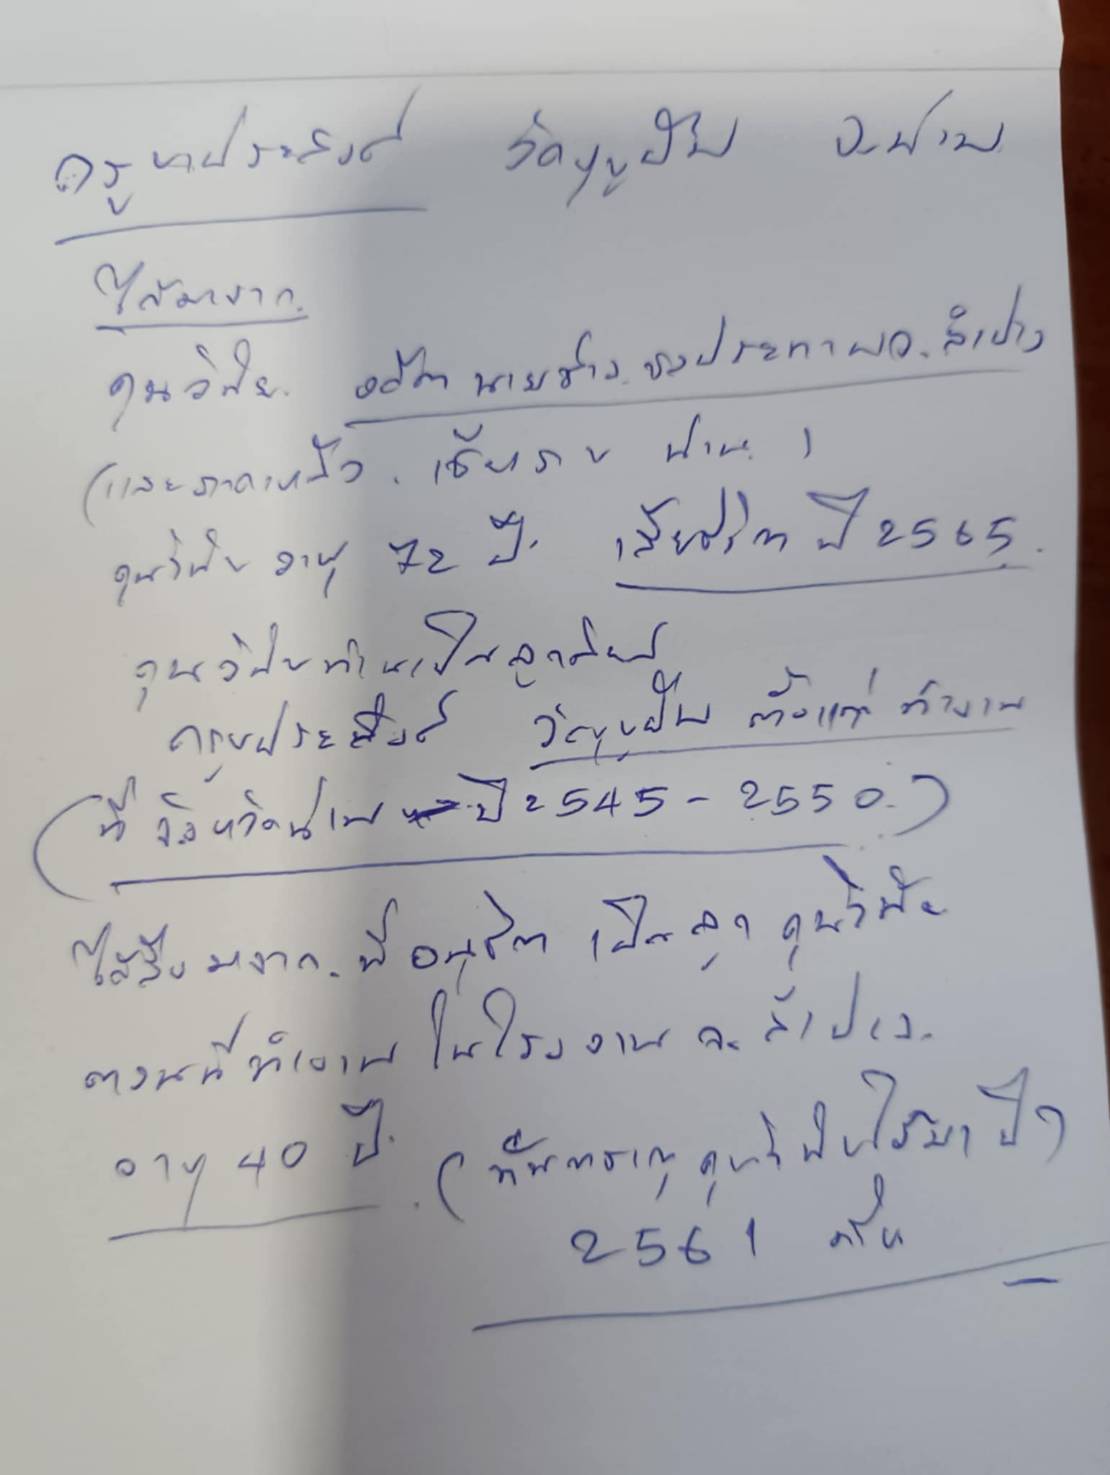 ครูบาประสิงค์ วัดบุญยืน จ.น่าน
ได้มาจาก.
คุณวินัย. อดีต นายช่าง. ชลประทาน จ. ลำปาง
(และภาคเหนือ. เชียงราย น่าน )
คุณวินัย อายุ 72 ปี. เสียชีวิต ปี 2565.
คุณวินัยท่านเป็นลูกศิษย์
ครูบาประสิงค์ วัดบุญยืน ตั้งแต่ ทำงาน
(ที่ จังหวัดน่าน ปี 2545 - 2550.)
ได้สืบ มาจาก. พี่ อนุชิต เป็น ลูก คุณวินัย
ตอนนี้ทำงาน ในโรงงาน จ. ลำปาง.
อายุ 40 ปี. ( คุณวินัยได้มา ปี )
2561 ครับ